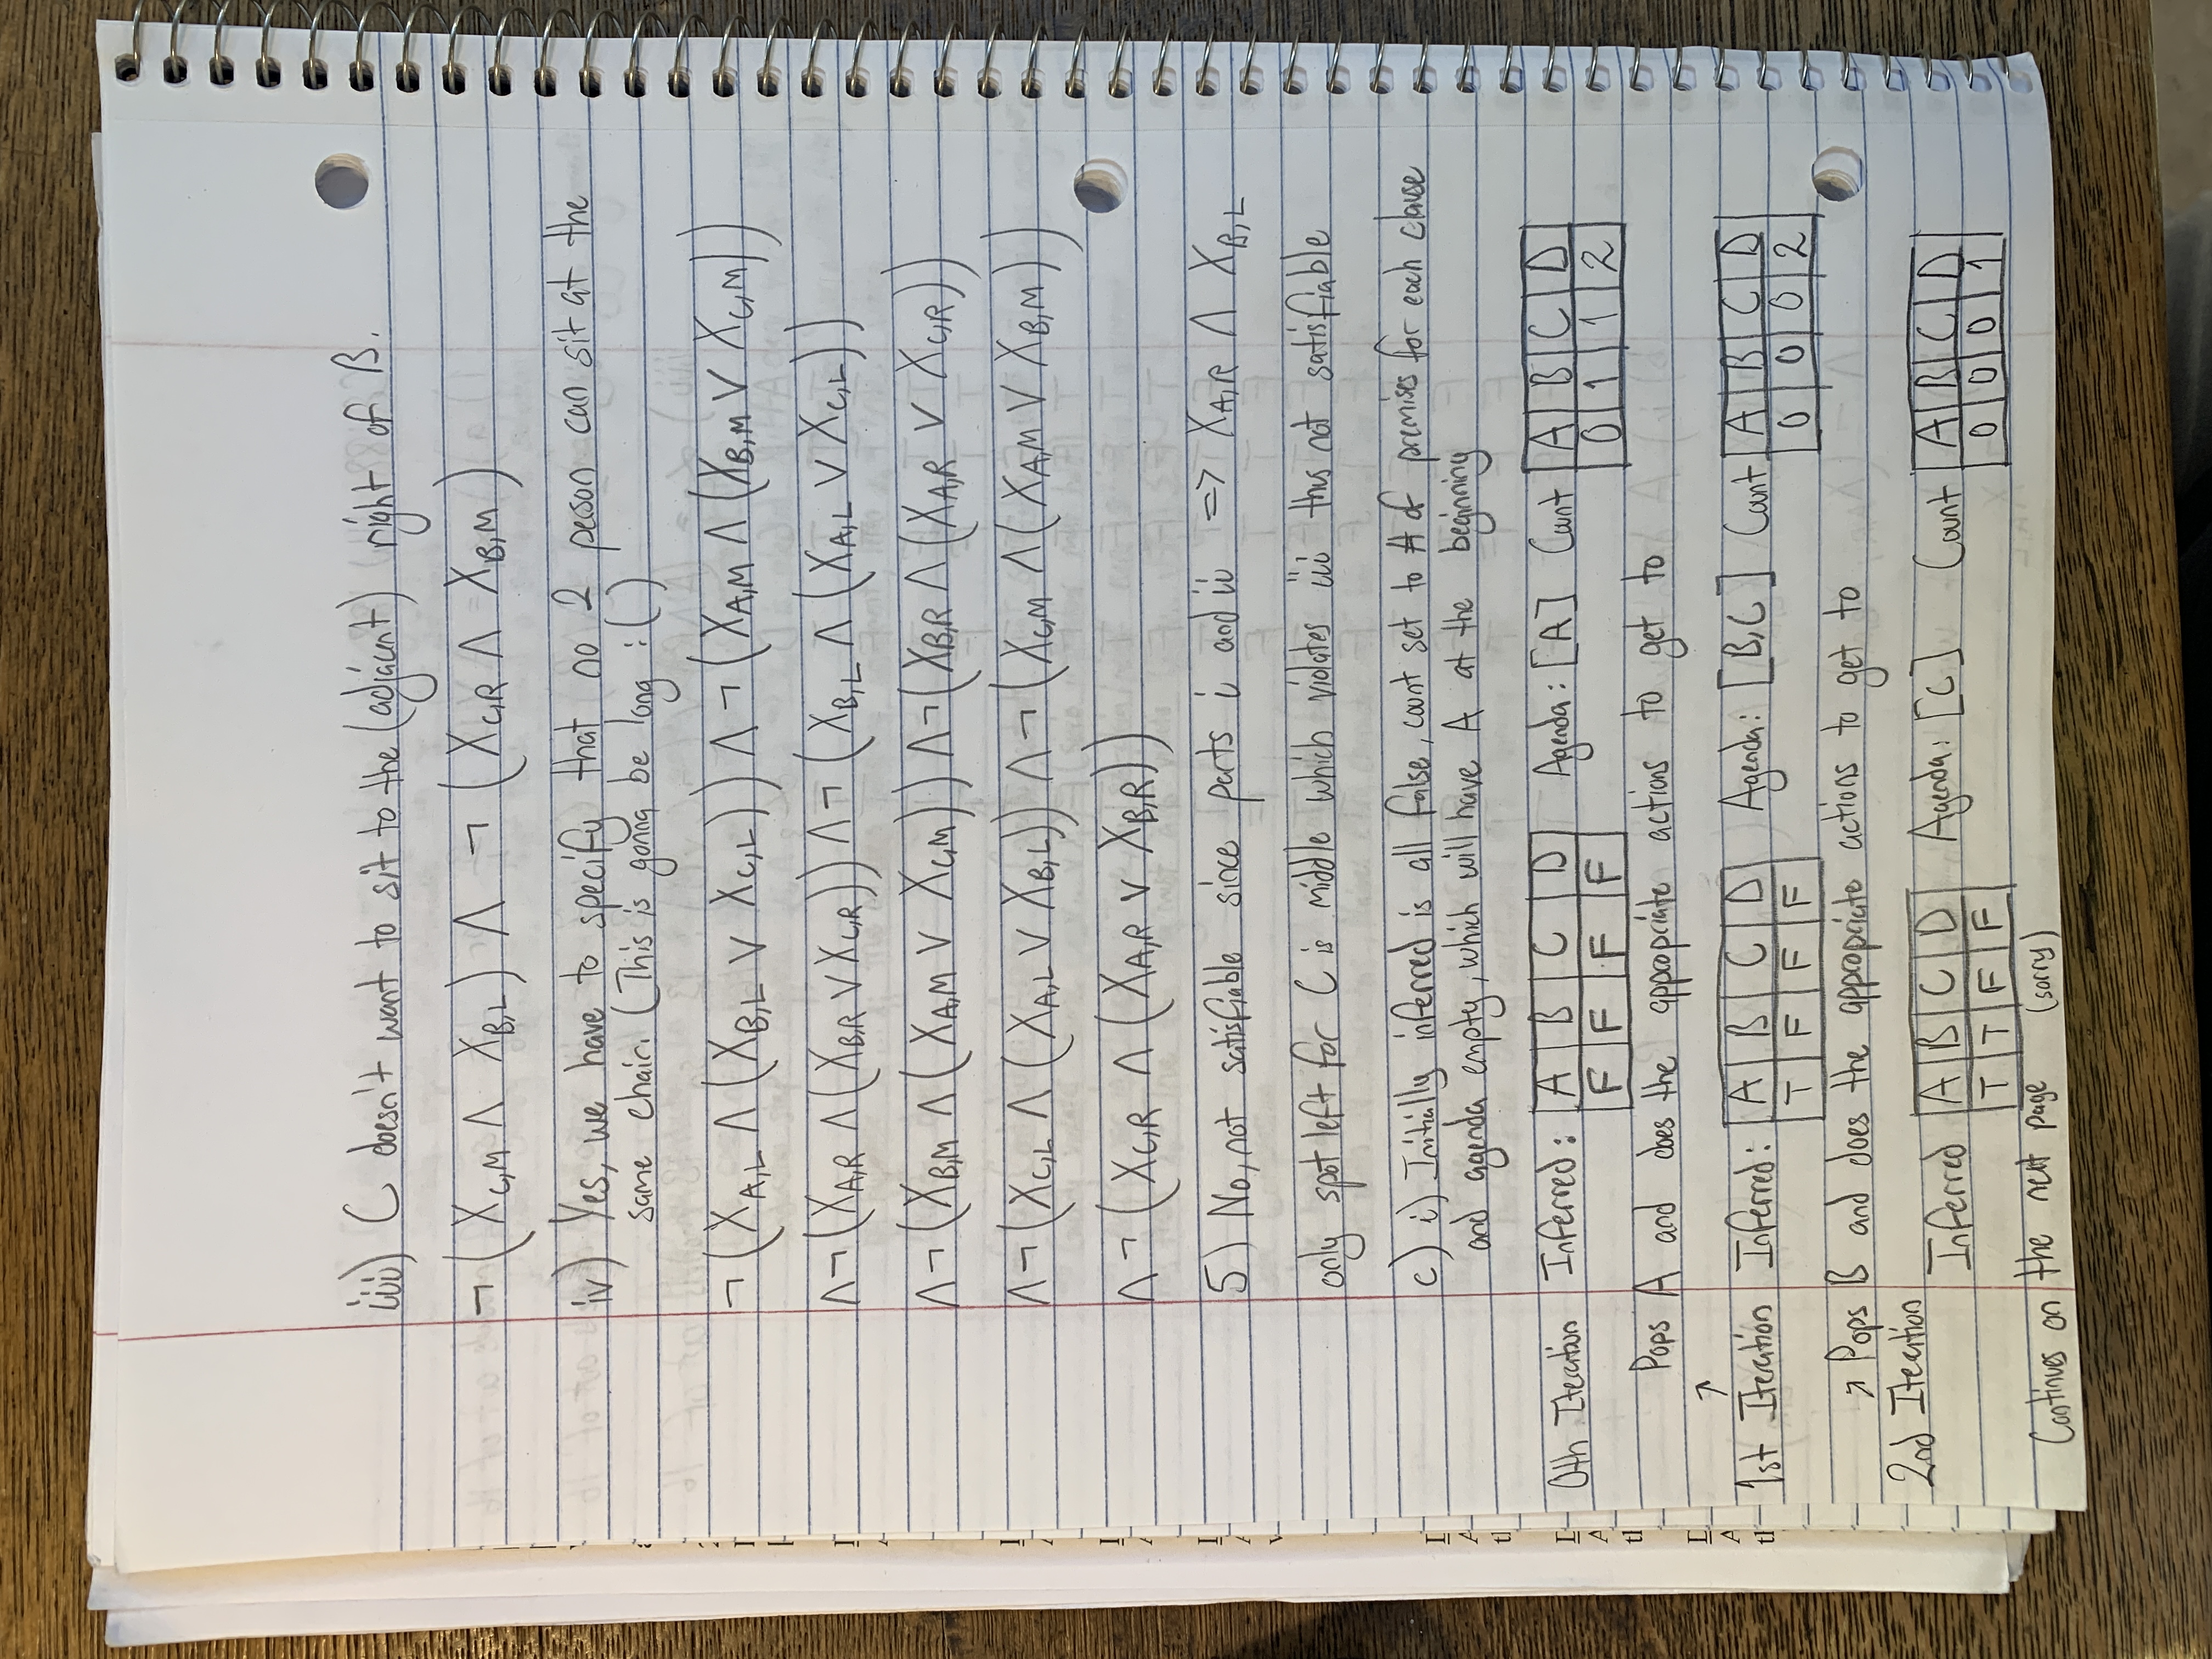 iii) C doesn't want to sit to the (adjacent) right of B.
¬(X_{C,M} ∧ X_{B,L}) ∧ ¬(X_{C,R} ∧ X_{B,M})
iv) Yes, we have to specify that no 2 person can sit at the
same chair. (This is gonna be long :()
¬(X_{A,L} ∧ (X_{B,L} ∨ X_{C,L})) ∧ ¬(X_{A,M} ∧ (X_{B,M} ∨ X_{C,M}))
∧¬(X_{A,R} ∧ (X_{B,R} ∨ X_{C,R})) ∧¬(X_{B,L} ∧ (X_{A,L} ∨ X_{C,L}))
∧¬(X_{B,M} ∧ (X_{A,M} ∨ X_{C,M})) ∧¬(X_{B,R} ∧ (X_{A,R} ∨ X_{C,R}))
∧¬(X_{C,L} ∧ (X_{A,L} ∨ X_{B,L})) ∧¬(X_{C,M} ∧ (X_{A,M} ∨ X_{B,M}))
∧¬(X_{C,R} ∧ (X_{A,R} ∨ X_{B,R}))
5) No, not satisfiable since parts i and ii => X_{A,R} ∧ X_{B,L}
only spot left for C is middle which violates iii thus not satisfiable
c) i) Initially inferred is all false, count set to # of premises for each clause
and agenda empty, which will have A at the beginning
0th Iteration Inferred: A B C D Agenda: [A] Count A B C D
F F F F 0 1 1 2
Pops A and does the appropriate actions to get to
↗
1st Iteration Inferred: A B C D Agenda: [B,C] Count A B C D
T F F F 0 0 0 2
↗ Pops B and does the appropriate actions to get to
2nd Iteration
Inferred A B C D Agenda: [C] Count A B C D
T T F F 0 0 0 1
Continues on the next page (sorry)